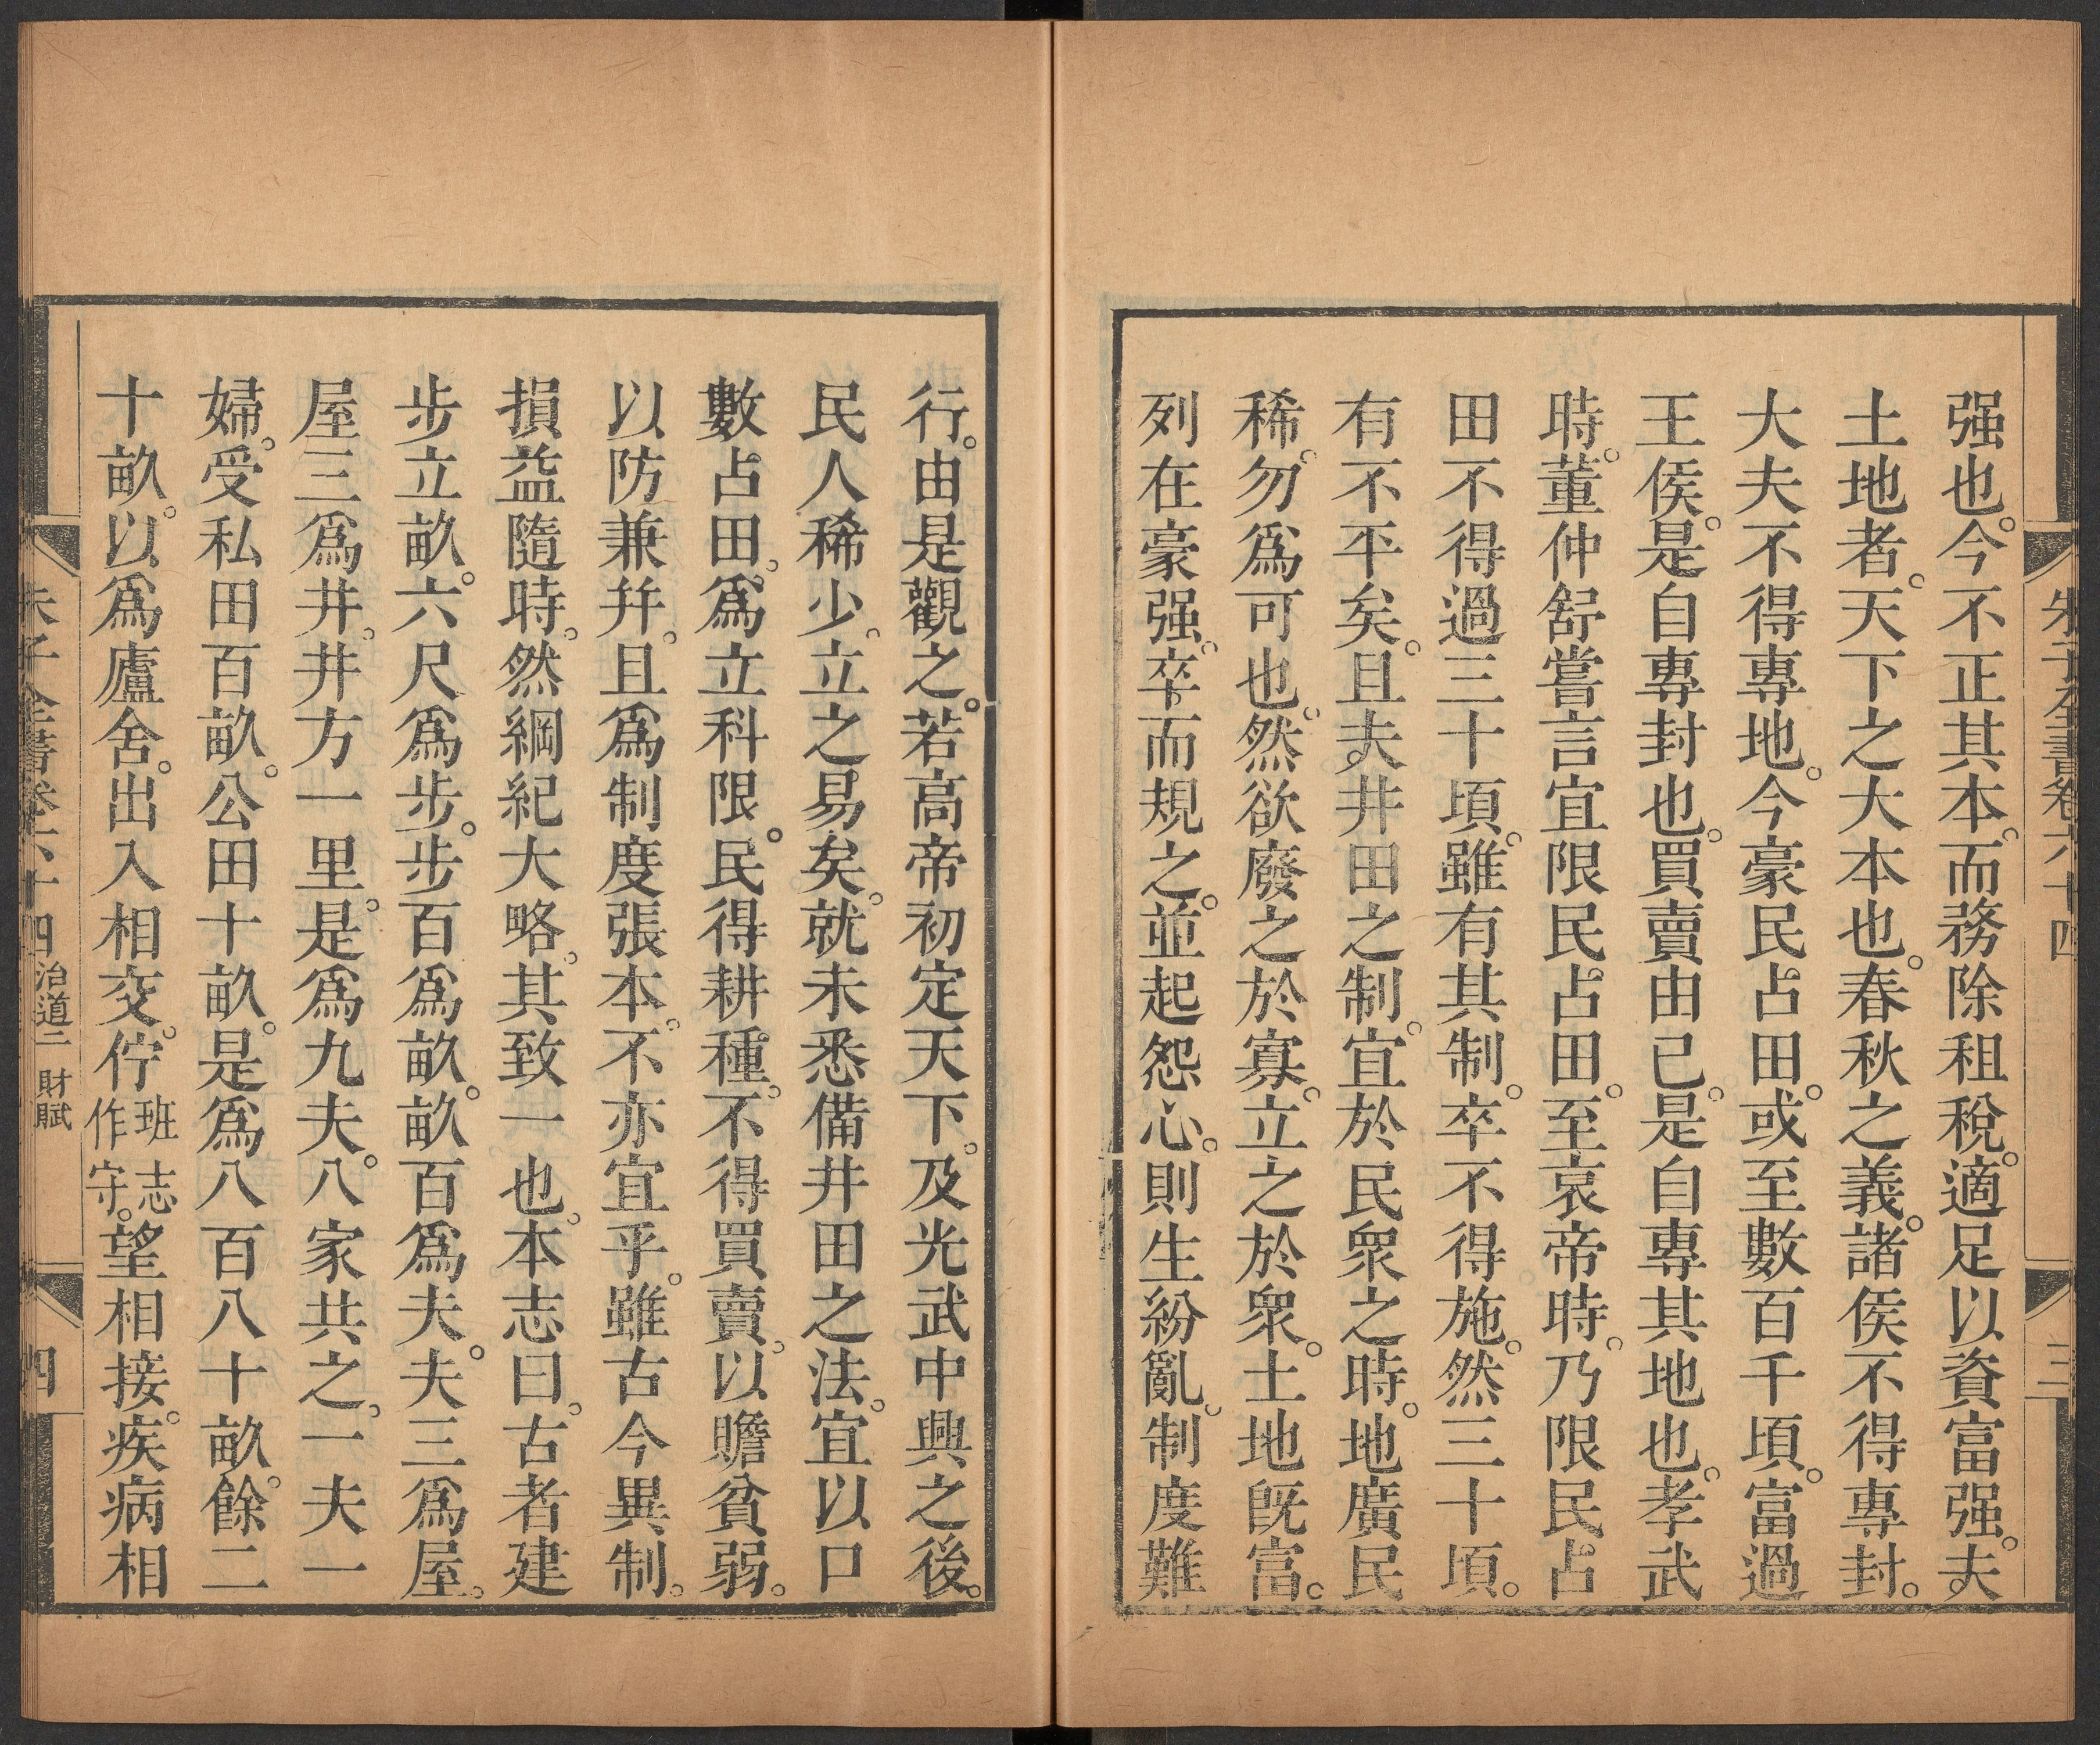 朱子全書卷六十四
三
强也。今不正其本。而務除租稅。適足以資富强。夫
土地者。天下之大本也。春秋之義。諸侯不得專封。
大夫不得專地。今豪民占田。或至數百千頃。富過
王侯。是自專封也。買賣由己。是自專其地也。孝武
時。董仲舒嘗言宜限民占田。至哀帝時。乃限民占
田不得過三十頃。雖有其制。卒不得施。然三十頃。
有不平矣。且夫井田之制。宜於民衆之時。地廣民
稀。勿爲可也。然欲廢之於寡。立之於衆。土地旣富。
列在豪强。卒而規之。並起怨心。則生紛亂。制度難
行。由是觀之。若高帝初定天下。及光武中興之後。
民人稀少。立之易矣。就未悉備井田之法。宜以口
數占田。爲立科限。民得耕種。不得買賣。以贍貧弱。
以防兼幷。且爲制度張本。不亦宜乎。雖古今異制。
損益隨時。然綱紀大略。其致一也。本志曰。古者建
步立畝。六尺爲步。步百爲畝。畝百爲夫。夫三爲屋。
屋三爲井。井方一里。是爲九夫。八家共之。一夫一
婦。受私田百畝。公田十畝。是爲八百八十畝。餘二
十畝。以爲廬舍。出入相交。佇班志作守。望相接。疾病相
朱子全書卷六十四 治道二 財賦
四